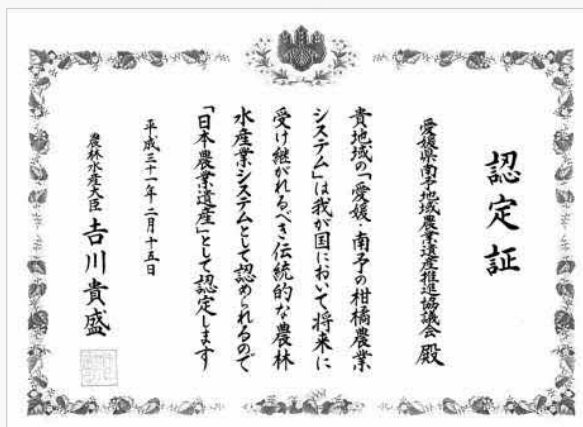 認定証
愛媛県南予地域農業遺産推進協議会 殿
貴地域の「愛媛・南予の柑橘農業
システム」は我が国において将来に
受け継がれるべき伝統的な農林
水産業システムとして認められるので
「日本農業遺産」として認定します
平成三十一年二月十五日
農林水産大臣 吉川貴盛